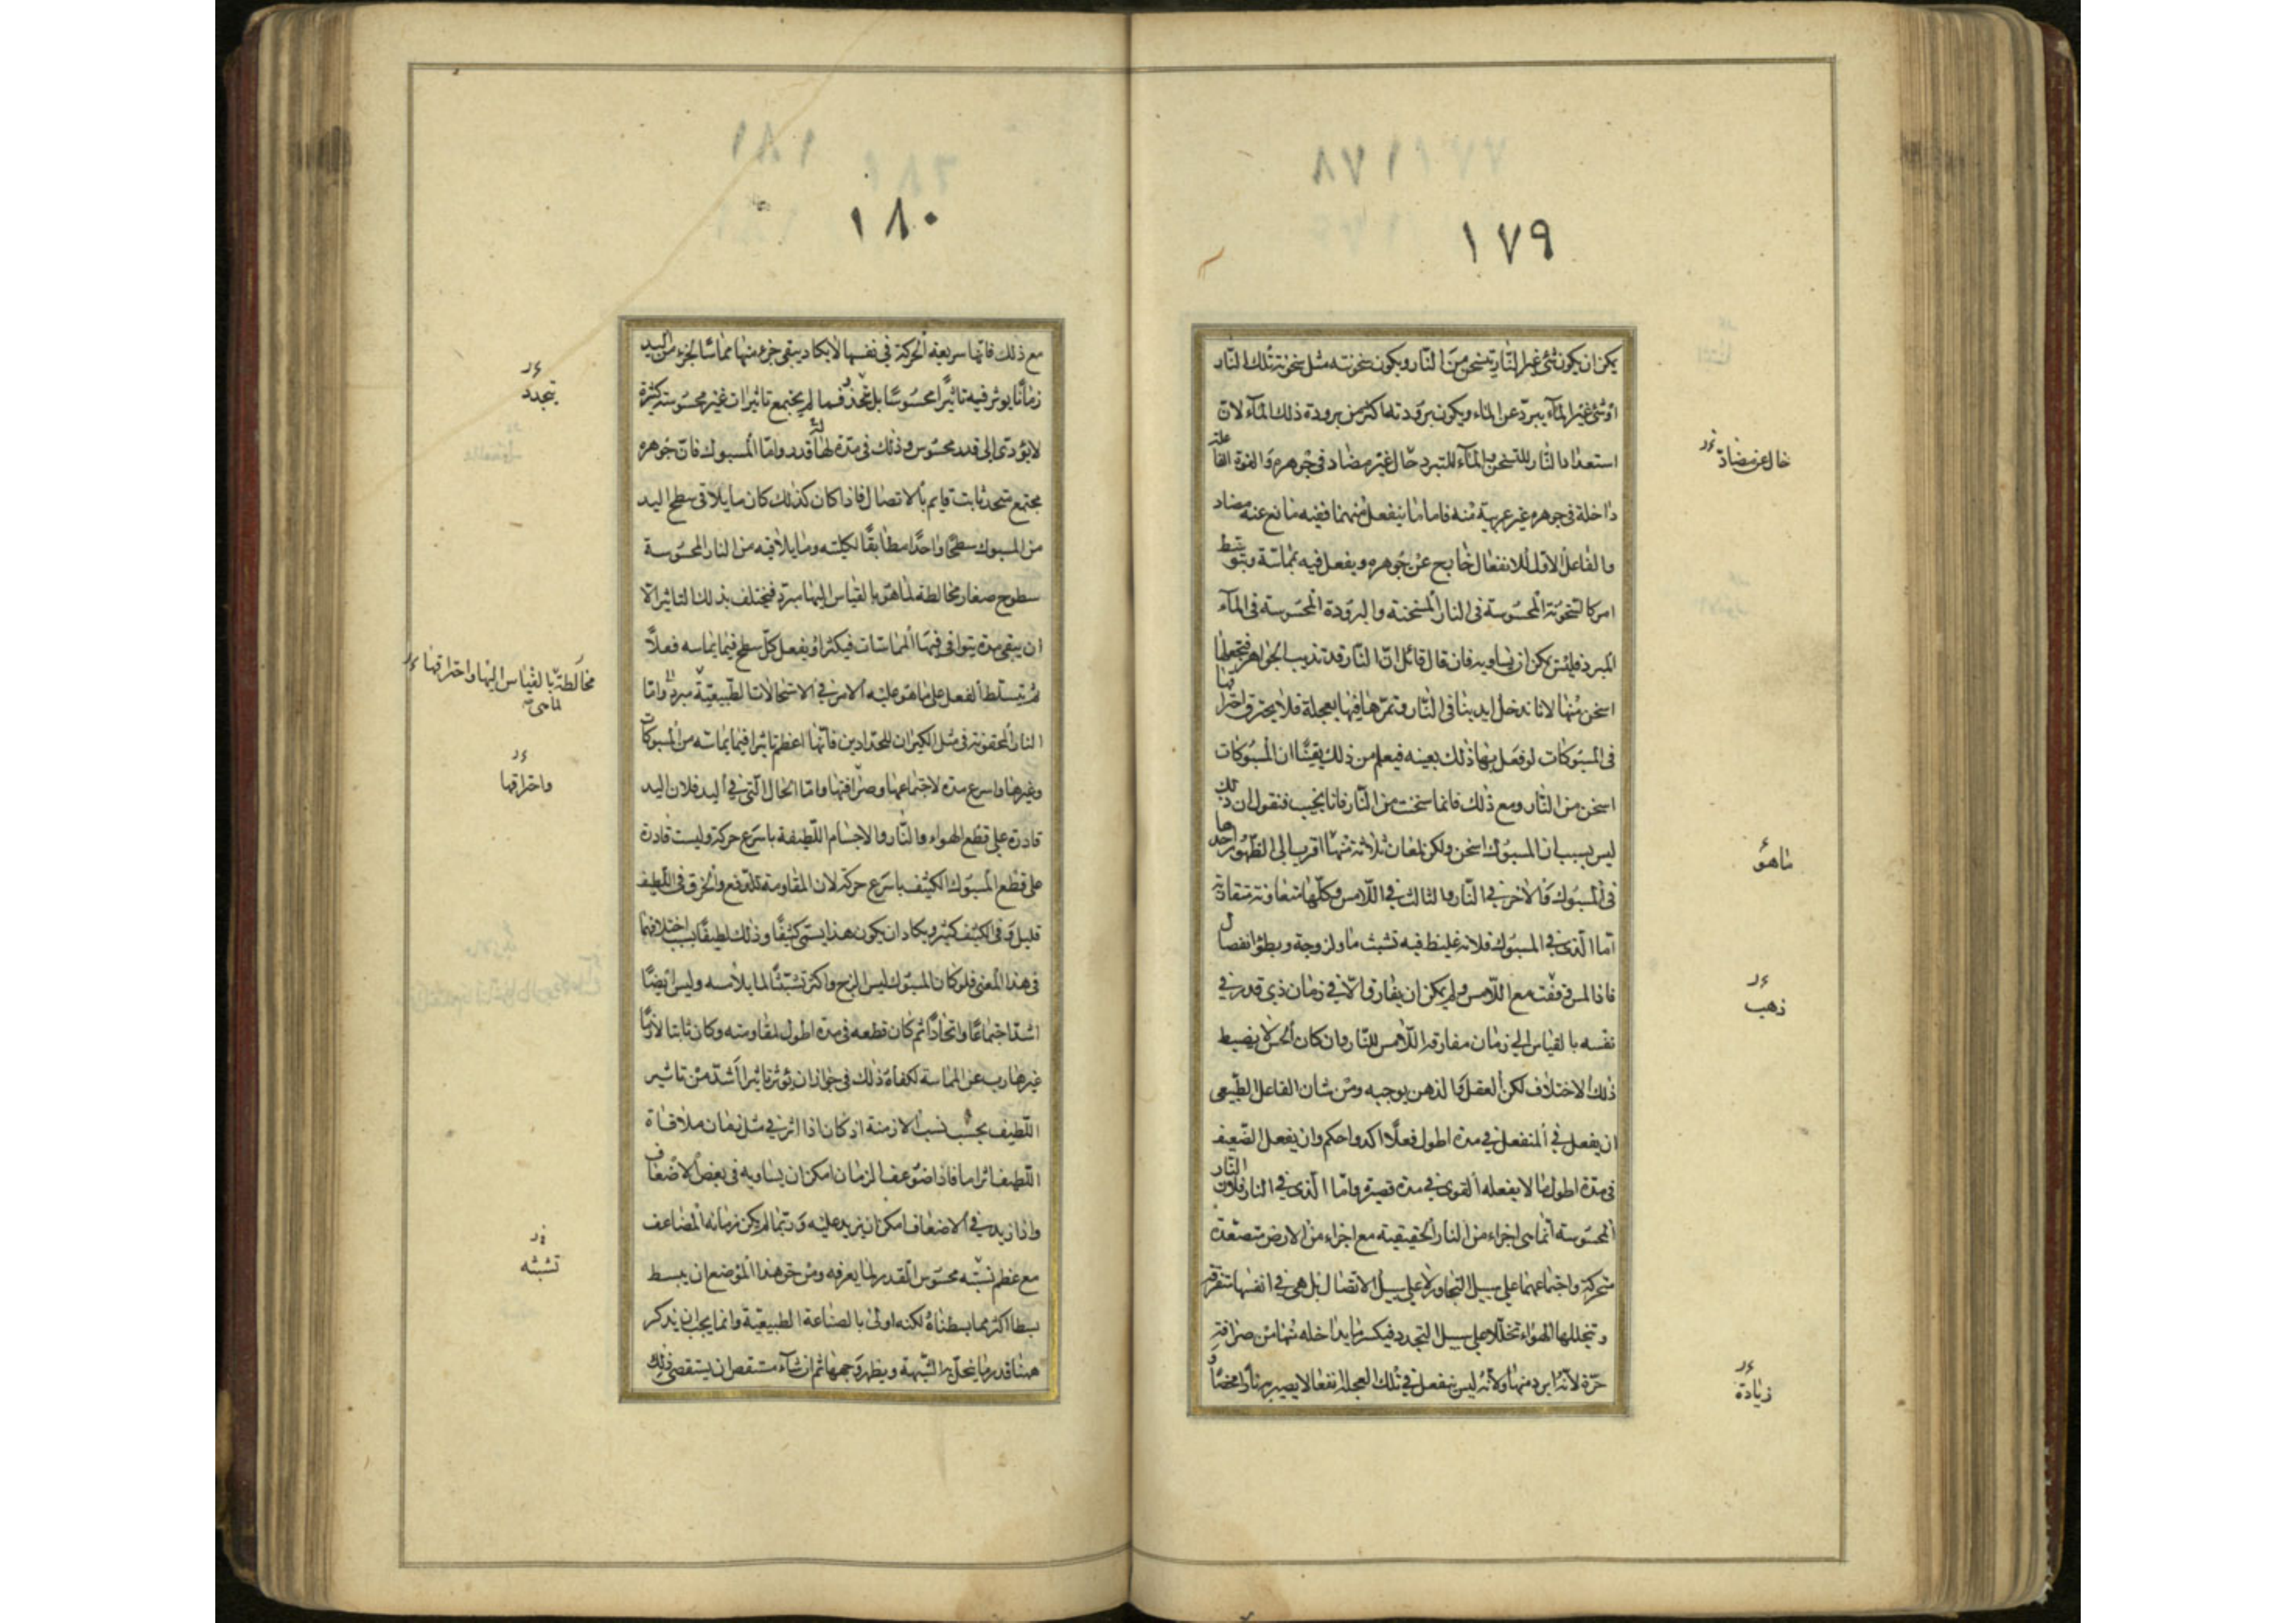 ١٧٨
١٧٩
يمكن ان يكون شئ غير النار يتسخن من النار ويكون سخونته مثل سخونة تلك النار
اوشئ غير المآء يبرد عن الماء ويكون برودته اكثر من برودة ذلك المآء لان
استعداد النار للتسخن والمآء للتبرد حال غير مضاد فى جوهره والقوة الفاعلة
داخلة فى جوهره غير غريبة منه فاما ما ينفعل منهما ففيه مانع عنه مضاد
والفاعل الاول للانفعال خارج عن جوهره ويفعل فيه بمماسّة وبتوسّط
امر كالسخونة المحسوسة فى النار المسخنة والبرودة المحسوسة فى المآء
المبرد فليس يمكن ان يساويه فان قال قائل انّ النّار قد تذيب الجواهر فتجعلها
اسخن منها لانا ندخل ايدينا فى النّار ونمرّها فيها بعجلة فلا يحترق احتراقها
فى المسبوكات لو فعل بها ذلك بعينه فيعلم من ذلك يقينًا ان المسبوكات
اسخن من النّار ومع ذلك فانما سخنت من النّار فانا نجيب فنقول ان ذلك
ليس بسبب ان المسبوك اسخن ولكن لمعان ثلاثة منها اقرب الى الظهور احدها
فى المسبوك والاخر فى النّار والثالث فى اللامس وكلّها متعاونة متقادة
اما الّذى فى المسبوك فلانه غليظ فيه تشبث ما ولزوجة وبطؤ انفصال
فاذا لمس فى وقت مع اللّامس ولم يمكن ان يفارق الّا فى زمان ذى قدر فى
نفسه بالقياس الى زمان مفارقة اللّامس للنّار وان كان الحس لا يضبط
ذلك الاختلاف لكن العقل والذهن يوجبه ومن شان الفاعل الطّبيعى
ان يفعل فى المنفعل فى مدة اطول فعلًا اكد واحكم وان يفعل الضّعيف
فى مدّة اطول ما لا يفعله القوى فى مدة قصيرة وامّا الّذى فى النار فلان النّار
المحسوسة انّما هى اجزاء من النار الحقيقية مع اجزاء من الارض متصعّدة
متحركة واجتماعهما على سبيل التجاور لا على سبيل الاتصال بل هى فى انفسها متفرقة
ويتخللها الهواء تخللا على سبيل التجدد فيكسر ما يداخله منها من صرافة
حرّه لانّه ابرد منها ولانّه ليس ينفعل فى تلك العجلة انفعالا يصير به نارا محضا
خال عن مضادّ
ما هو
ذهب
زيادة
١٨١
١٨٠
مع ذلك فانّها سريعة الحركة فى نفسها لا يكاد يبقى جزء منها مماسّا لجزء من اليد
زمانًا يوثر فيه تاثيرًا محسوسًا بل يتجدد فما لم يجتمع تاثيرات غير محسوسة كثيرة
لا يؤدّى الى قدر محسوس وذلك فى مدة لها قدر وامّا المسبوك فانّ جوهره
مجتمع متحد ثابت قايم بالاتصال فاذا كان كذلك كان ما يلاقى سطح اليد
من المسبوك سطحًا واحدًا مطابقًا لكليّته وما يلاقيه من النار المحسوسة
سطوح صغار مخالطة لما هو بالقياس اليها مبرد فيختلف بذلك التاثير الا
ان يبقى مدة يتوافى فيها المماسّات فيكثر او يفعل كلّ سطح فيما يماسه فعلاً
ثم يتسلط الفعل على ما هو عليه الامر فى الاستحالات الطّبيعيّة وامّا
النار المحقونة فى مثل الكيران للحدّادين فانّها اعظم تاثيرا فيما يماسّه من المسبوكات
وغيرها واسرع مدة لاجتماعها وصرافتها وامّا الحال الّتى فى اليد فلان اليد
قادرة على قطع الهواء والنّار والاجسام اللّطيفة باسرع حركة وليست قادرة
على قطع المسبوك الكثيف باسرع حركة لان المقاومة للدفع والخرق فى اللّطيف
قليل وفى الكثيف كثير ويكاد ان يكون هذا يسمّى كثيفًا وذلك لطيفًا بسبب اختلافهما
فى هذا المعنى فلو كان المسبوك ليس الزج واكثر تشبّثًا لما يلامسه وليس ايضًا
اشدّ اجتماعًا واتحادًا ثم كان قطعه فى مدة اطول لمقاومته وكان ثابتا لازما
غير هارب عن المماسة لكفاه ذلك فى جواز ان يؤثر تاثيرا اشدّ من تاثير
اللّطيف بحسب نسب الازمنة اذ كان اذا اثر فى مثل زمان ملاقاة
اللّطيف اثرا ما فاذا ضوعف الزمان امكن ان يساويه فى بعض الاضعاف
واذا زيد فى الاضعاف امكن ان يزيد عليه وربّما لم يكن زمانه المضاعف
مع عظم نسبته محسوس القدر لما يعرفه ومن حق هذا الموضع ان يبسط
بسطا اكثر مما بسطناه لكنه اولى بالصناعة الطبيعيّة وانما يجب ان يذكر
ههنا قدر ما ينحل به الشّبهة ويظهر وجهها ثم ان شآء مستقص ان يستقصى ذلك
يتجدد
مخالطة بالقياس اليها واحتراقها
واحتراقها
نسبته